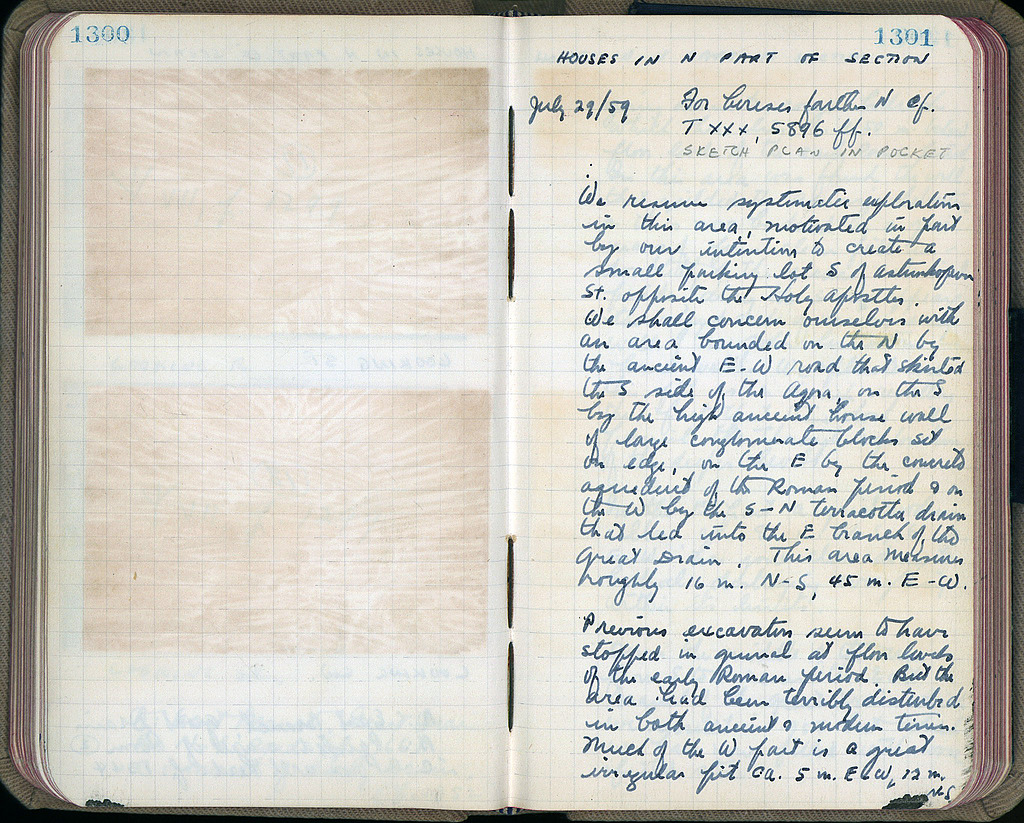 1300
1301
HOUSES IN N PART OF SECTION
July 29/59 For houses farther N cf.
T XXX, 5896 ff.
SKETCH PLAN IN POCKET
We resume systematic exploration
in this area, motivated in part
by our intention to create a
small parking lot S of Asteroskopeiou
St. opposite the Holy Apostles.
We shall concern ourselves with
an area bounded on the N by
the ancient E-W road that skirted
the S side of the Agora, on the S
by the high ancient house wall
of large conglomerate blocks set
on edge, on the E by the concrete
aqueduct of the Roman period & on
the W by the S-N terracotta drain
that led into the E branch of the
Great Drain. This area measures
roughly 16 m. N-S, 45 m. E-W.
Previous excavators seem to have
stopped in general at floor levels
of the early Roman period. But the
area had been terribly disturbed
in both ancient & modern times.
Much of the W part is a great
irregular pit ca. 5 m. E-W, 12 m.
N-S